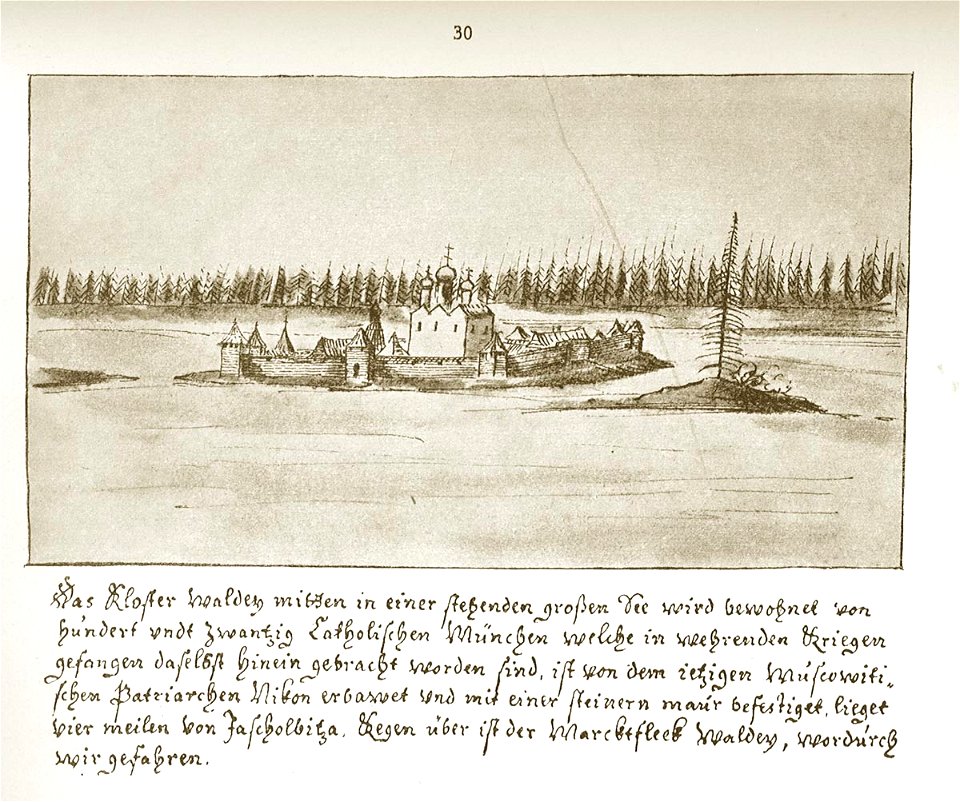 30
Das Kloster Waldey mitten in einer stehenden großen See wird bewohnet von
hundert vndt zwantzig Catholischen München welche in wehrenden Kriegen
gefangen daselbst hinein gebracht worden sind, ist von dem ietzigen Muscowiti-
schen Patriarchen Nikon erbawet vnd mit einer steinern maur befestiget, lieget
vier meilen von Jascholbitza. Kegen über ist der Marcktfleck Waldey, wordurch
wir gefahren.